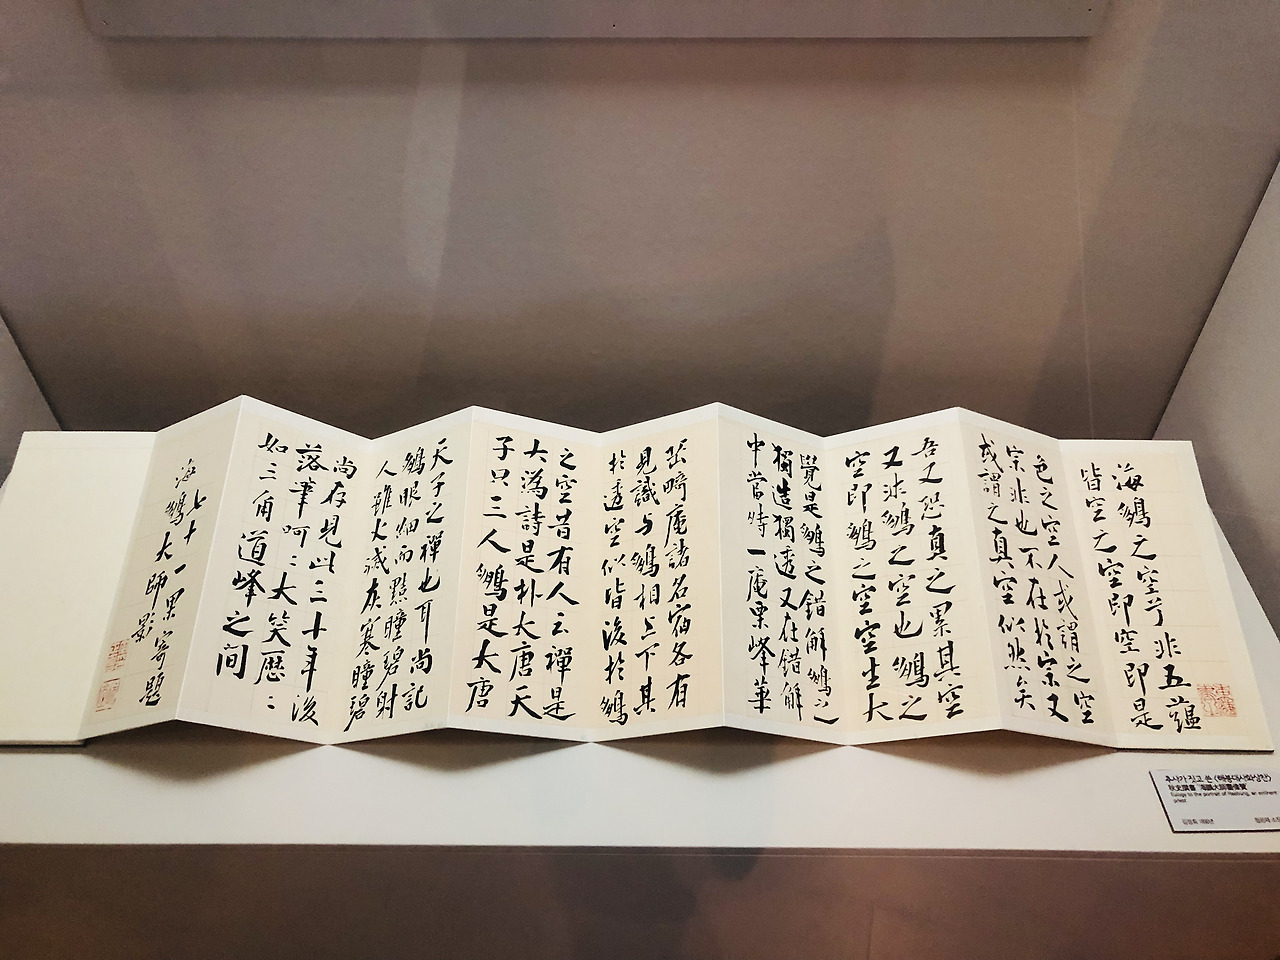 海鵬之空兮非五蘊
皆空之空即空即是
色之空人或謂之空
宗非也不在於宗又
或謂之真空似然矣
吾又恐真之累其空
又非鵬之空也鵬之
空即鵬之空空生大
覺是鵬之錯解鵬之
獨造獨透又在錯解
中當時一庵栗峰華
嶽畸庵諸名宿各有
見識与鵬相上下其
於透空似皆後於鵬
之空昔有人云禪是
大潙詩是朴大唐天
子只三人鵬是大唐
天子之禪也耳尚記
鵬眼細而點瞳碧射
人雖火滅灰寒瞳碧
尚存見此三十年後
落筆呵〻大笑歷〻
如三角道峰之间
七十一果寄題
海鵬大師影
추사가 짓고 쓴 〈해붕대사화상찬〉
Eulogy to the portrait of Haebung, an eminent priest